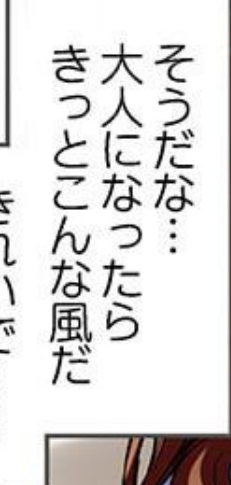 そうだな…
大人になったら
きっとこんな風だ